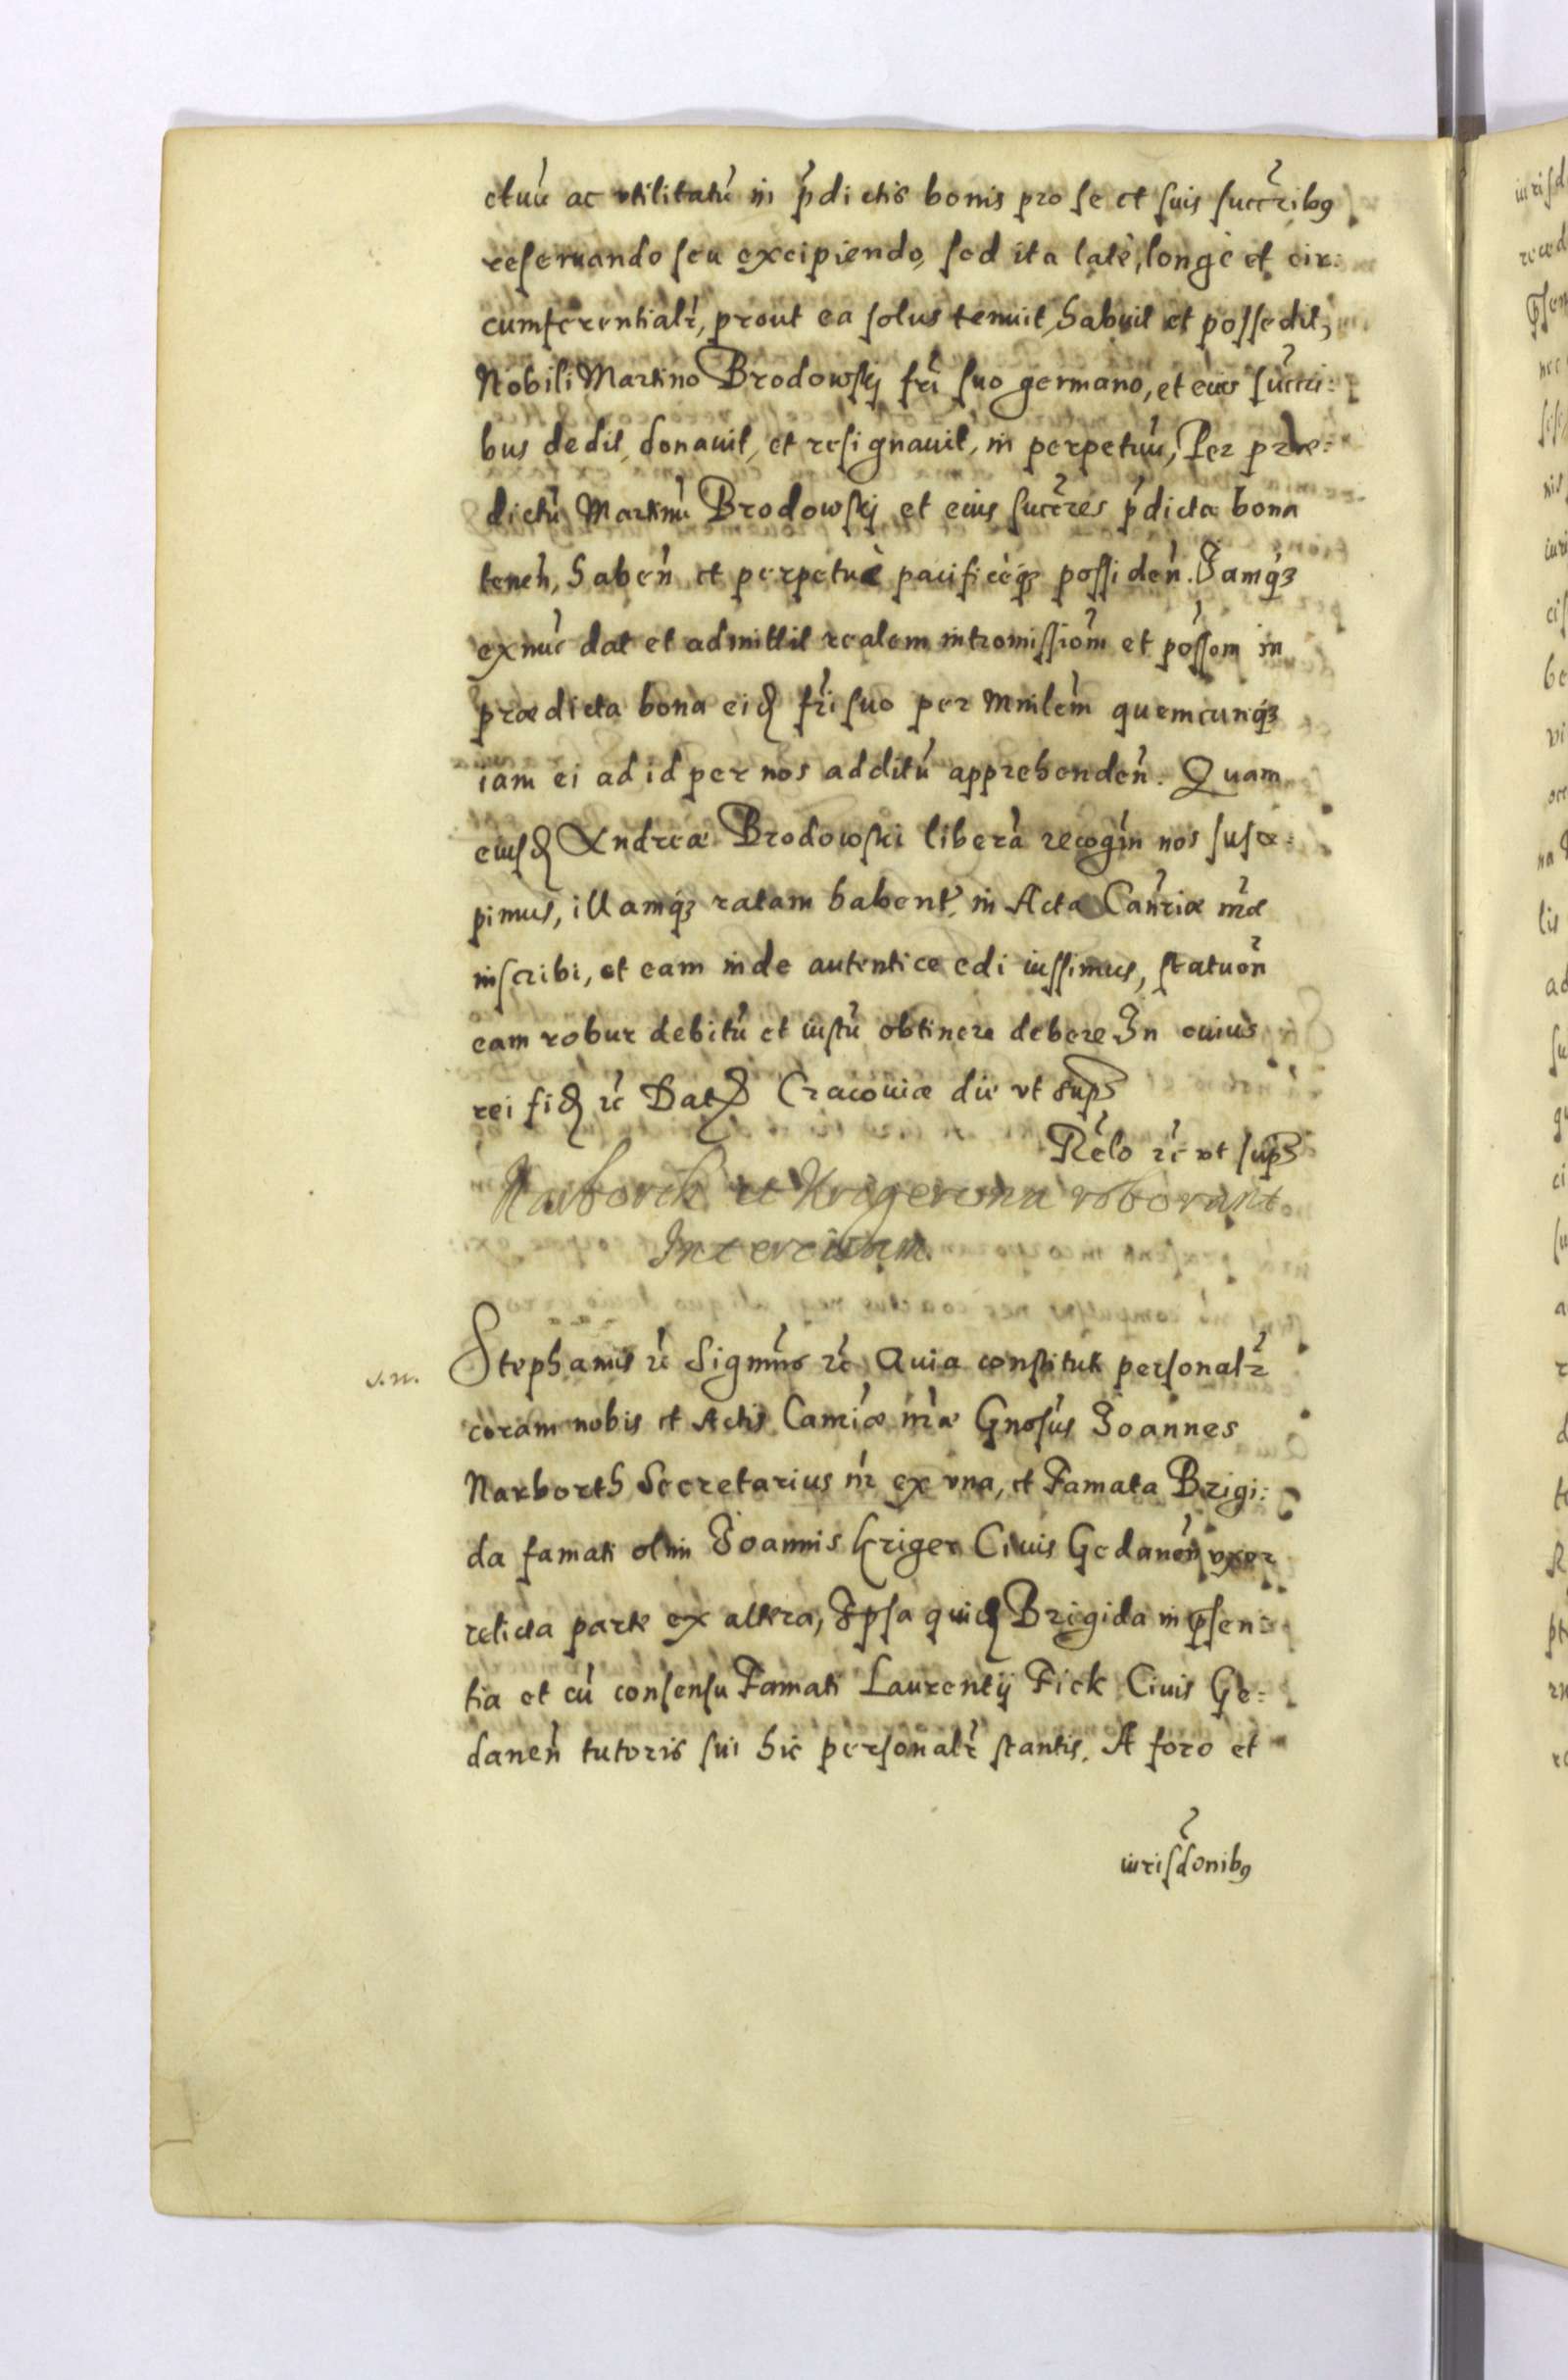 ctuũ ac vtilitatũ in p̃dictis bonis pro se et suis succr̃ibꝰ
reseruando seu excipiendo, sed ita latè, longè et cir:
cumferentialr̃, prout ea solus tenuit, habuit et possedit,
Nobili Martino Brodowskj fr̃i suo germano, et eius succri:
bus dedit, donauit, et resignauit, in perpetuũ, Per prae:
dictũ Martinũ Brodowskj et eius succr̃es p̃dicta bona
teneñ, habeñ et perpetuè pacificèqꝫ possideñ. Iamqꝫ
exnũc dat et admittit realem intromissiom̃ et possom̃ in
praedicta bona eidꝫ fr̃i suo per Mnilem̃ quemcunqꝫ
iam ei ad id per nos additũ apprehendeñ. Quam
eiusdꝫ Andreae Brodowski liberã recogñ nos susce:
pimus, illamqꝫ ratam habent̃, in Acta Canr̃iae nr̃ae
inscribi, et eam inde autentice edi iussimus, statueñ
eam robur debitũ et iustũ obtinere debere In cuius
rei fidꝫ ꝛc̃ Datꝫ Cracouiae die vt sup̃
Rel̃o ꝛc̃ vt sup̃
Narborch et Krigerowa roborant
Intercisam.
v.n.
Stephanus ꝛc̃ Sigm̃us ꝛc̃ Quia constituti personalr̃
coram nobis et Actis Canr̃iae nr̃ae Gnosũs Ioannes
Narborth Secretarius nr̃ ex vna, et Famata Brigi:
da famati olim Ioannis Kriger Ciuis Gedaneñ vxor
relicta parte ex altera, Ipsa quidꝫ Brigida in p̃sen:
tia et cũ consensu Famati Laurentij Fick Ciuis Ge:
daneñ tutoris sui hic personalr̃ stantis. A foro et
iurisdõnibꝰ